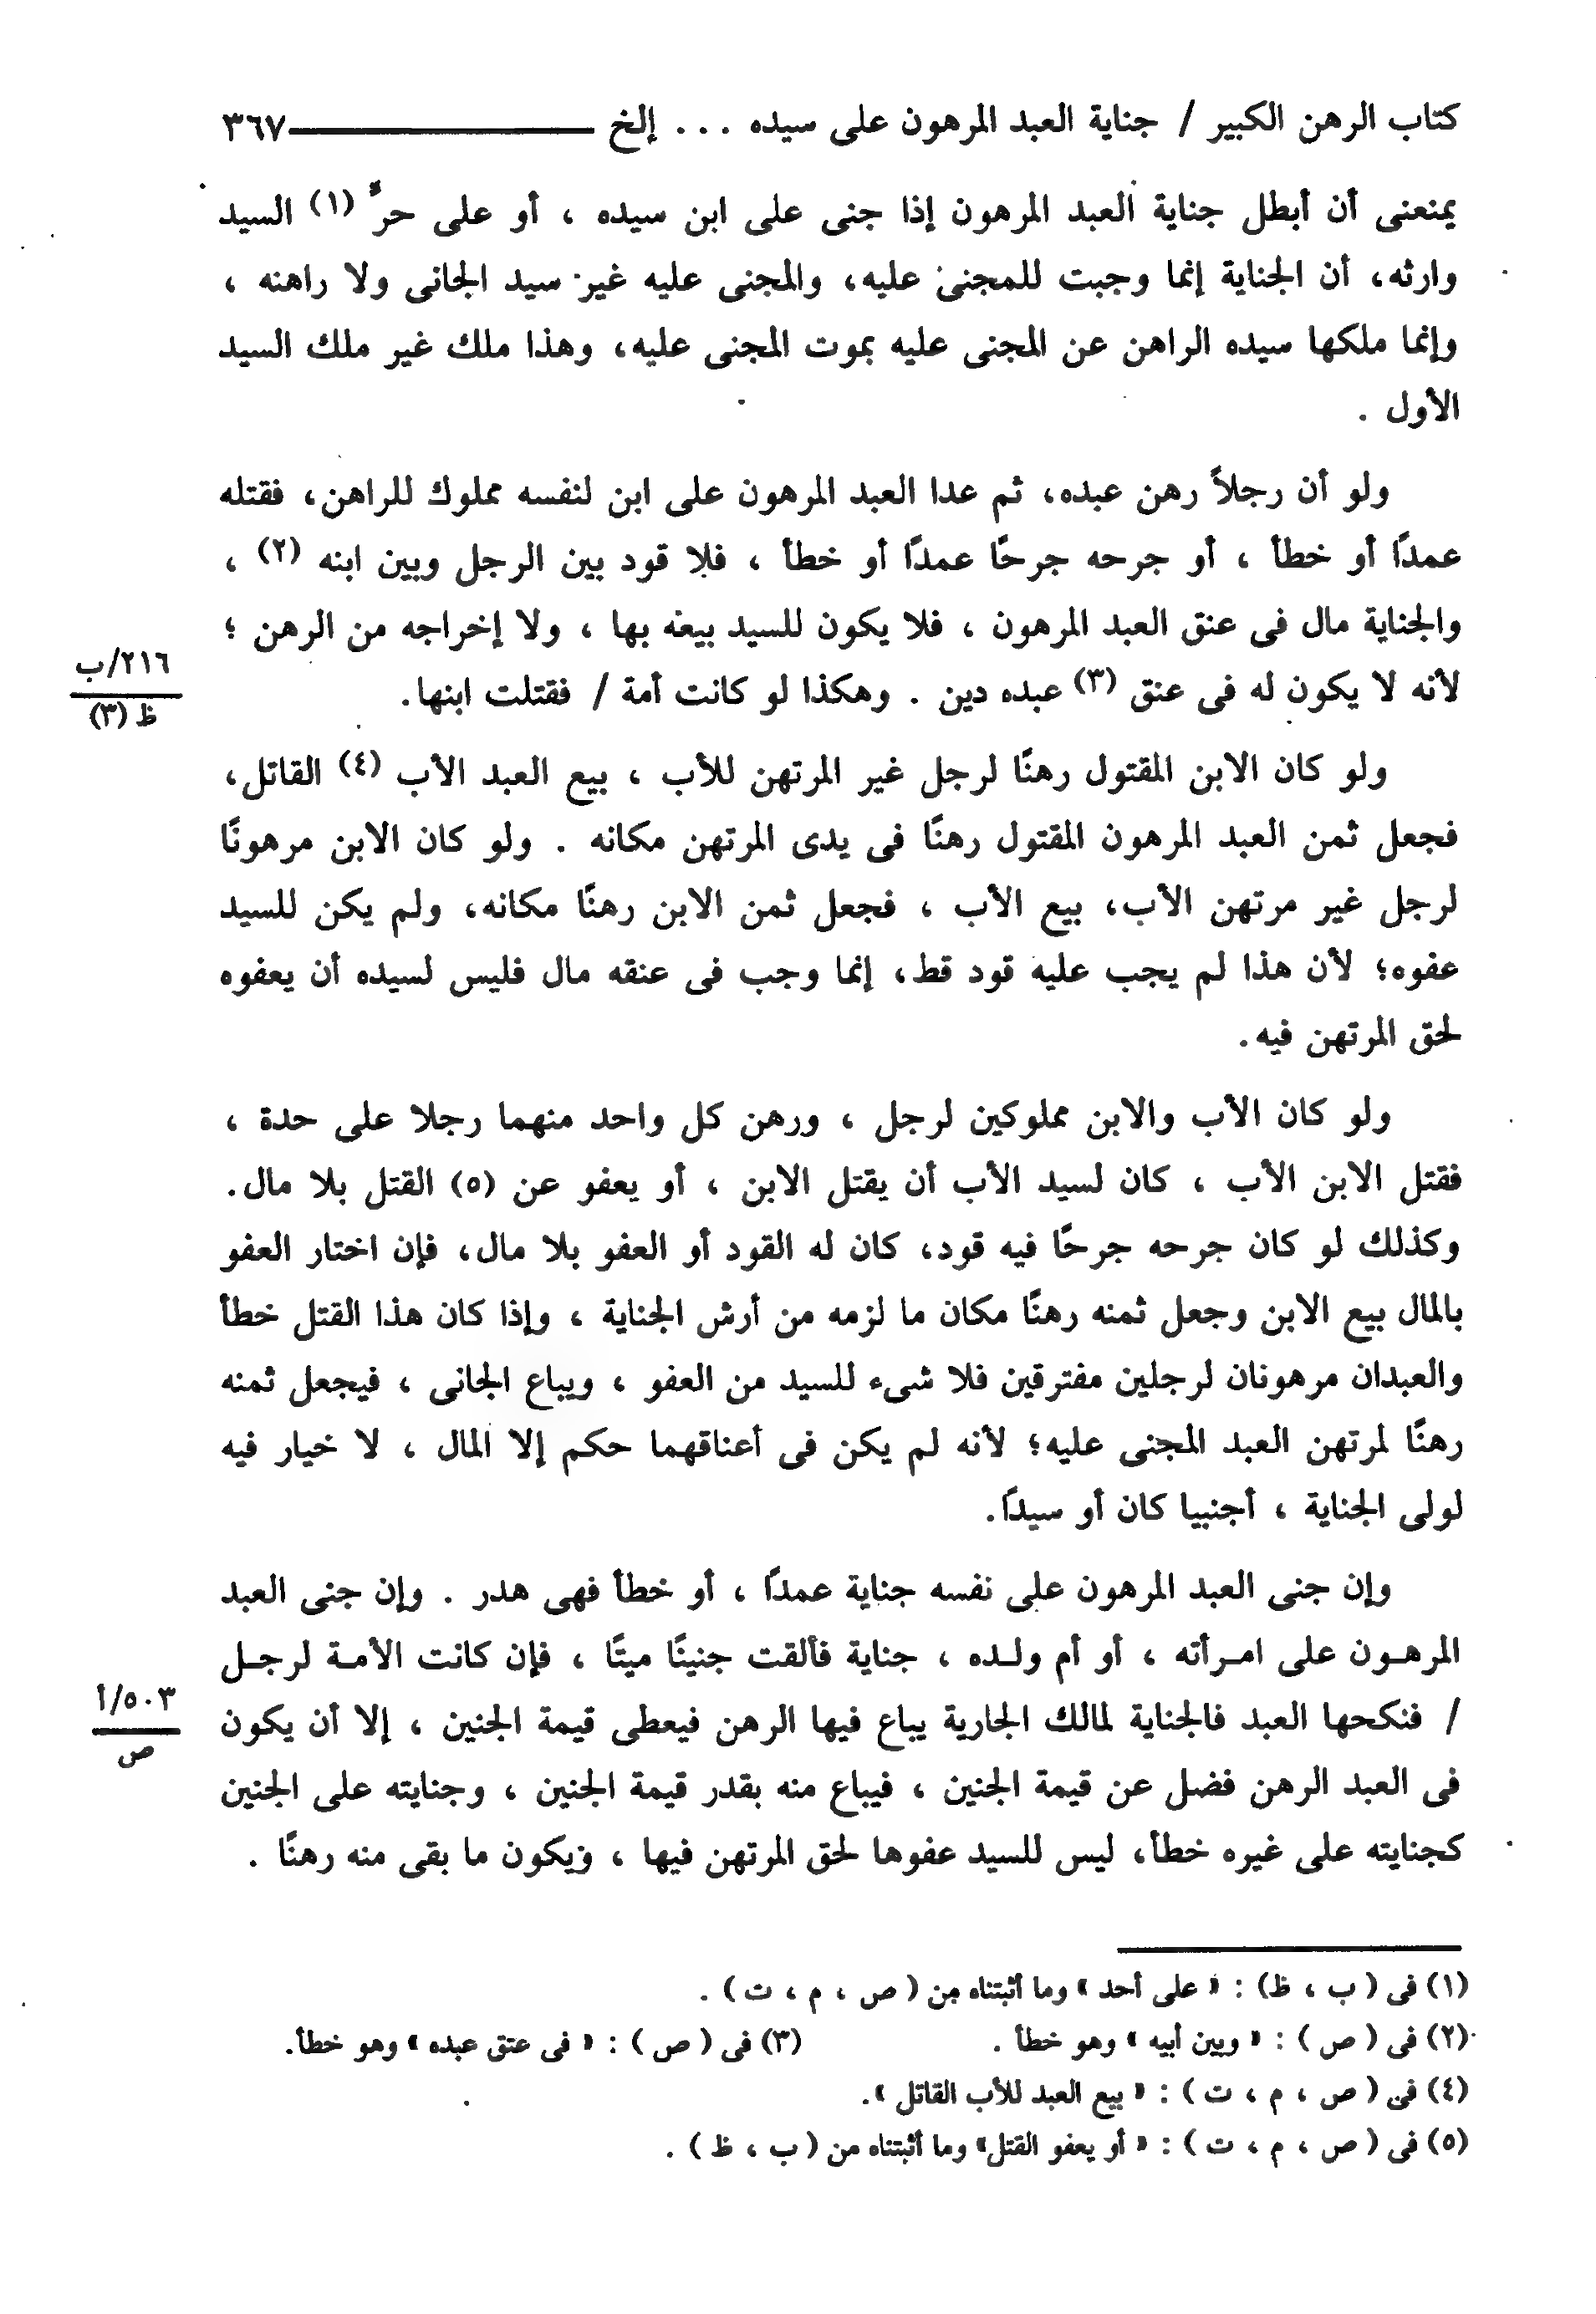 كتاب الرهن الكبير / جناية العبد المرهون على سيده ... إلخ ٣٦٧
يمنعنى أن أبطل جناية العبد المرهون إذا جنى على ابن سيده ، أو على حرٍّ (١) السيد
وارثه، أن الجناية إنما وجبت للمجنى عليه، والمجنى عليه غير سيد الجانى ولا راهنه ،
وإنما ملكها سيده الراهن عن المجنى عليه بموت المجنى عليه، وهذا ملك غير ملك السيد
الأول .
ولو أن رجلاً رهن عبده، ثم عدا العبد المرهون على ابن لنفسه مملوك للراهن، فقتله
عمدًا أو خطأ ، أو جرحه جرحًا عمدًا أو خطأ ، فلا قود بين الرجل وبين ابنه (٢) ،
والجناية مال فى عنق العبد المرهون ، فلا يكون للسيد بيعه بها ، ولا إخراجه من الرهن ؛
٢١٦/ب
لأنه لا يكون له فى عنق (٣) عبده دين . وهكذا لو كانت أمة / فقتلت ابنها.
ظ (٣)
ولو كان الابن المقتول رهنًا لرجل غير المرتهن للأب ، بيع العبد الأب (٤) القاتل،
فجعل ثمن العبد المرهون المقتول رهنًا فى يدى المرتهن مكانه . ولو كان الابن مرهونًا
لرجل غير مرتهن الأب، بيع الأب ، فجعل ثمن الابن رهنًا مكانه، ولم يكن للسيد
عفوه؛ لأن هذا لم يجب عليه قود قط، إنما وجب فى عنقه مال فليس لسيده أن يعفوه
لحق المرتهن فيه.
ولو كان الأب والابن مملوكين لرجل ، ورهن كل واحد منهما رجلا على حدة ،
فقتل الابن الأب ، كان لسيد الأب أن يقتل الابن ، أو يعفو عن (٥) القتل بلا مال.
وكذلك لو كان جرحه جرحًا فيه قود، كان له القود أو العفو بلا مال، فإن اختار العفو
بالمال بيع الابن وجعل ثمنه رهنًا مكان ما لزمه من أرش الجناية ، وإذا كان هذا القتل خطأ
والعبدان مرهونان لرجلين مفترقين فلا شىء للسيد من العفو ، ويباع الجانى ، فيجعل ثمنه
رهنًا لمرتهن العبد المجنى عليه؛ لأنه لم يكن فى أعناقهما حكم إلا المال ، لا خيار فيه
لولى الجناية ، أجنبيا كان أو سيدًا.
وإن جنى العبد المرهون على نفسه جناية عمدًا ، أو خطأ فهى هدر . وإن جنى العبد
المرهـون على امـرأته ، أو أم ولـده ، جناية فألقت جنينًا ميتًا ، فإن كانت الأمـة لرجـل
٥٠٣/أ
/ فنكحها العبد فالجناية لمالك الجارية يباع فيها الرهن فيعطى قيمة الجنين ، إلا أن يكون
ص
فى العبد الرهن فضل عن قيمة الجنين ، فيباع منه بقدر قيمة الجنين ، وجنايته على الجنين
كجنايته على غيره خطأ، ليس للسيد عفوها لحق المرتهن فيها ، ويكون ما بقى منه رهنًا .
(١) فى ( ب ، ظ) : « على أحد » وما أثبتناه من ( ص ، م ، ت ) .
(٢) فى ( ص ) : « وبين أبيه » وهو خطأ . (٣) فى ( ص ) : « فى عتق عبده » وهو خطأ.
(٤) فى ( ص ، م ، ت ) : « بيع العبد للأب القاتل ».
(٥) فى ( ص ، م ، ت ) : « أو يعفو القتل» وما أثبتناه من ( ب ، ظ ) .